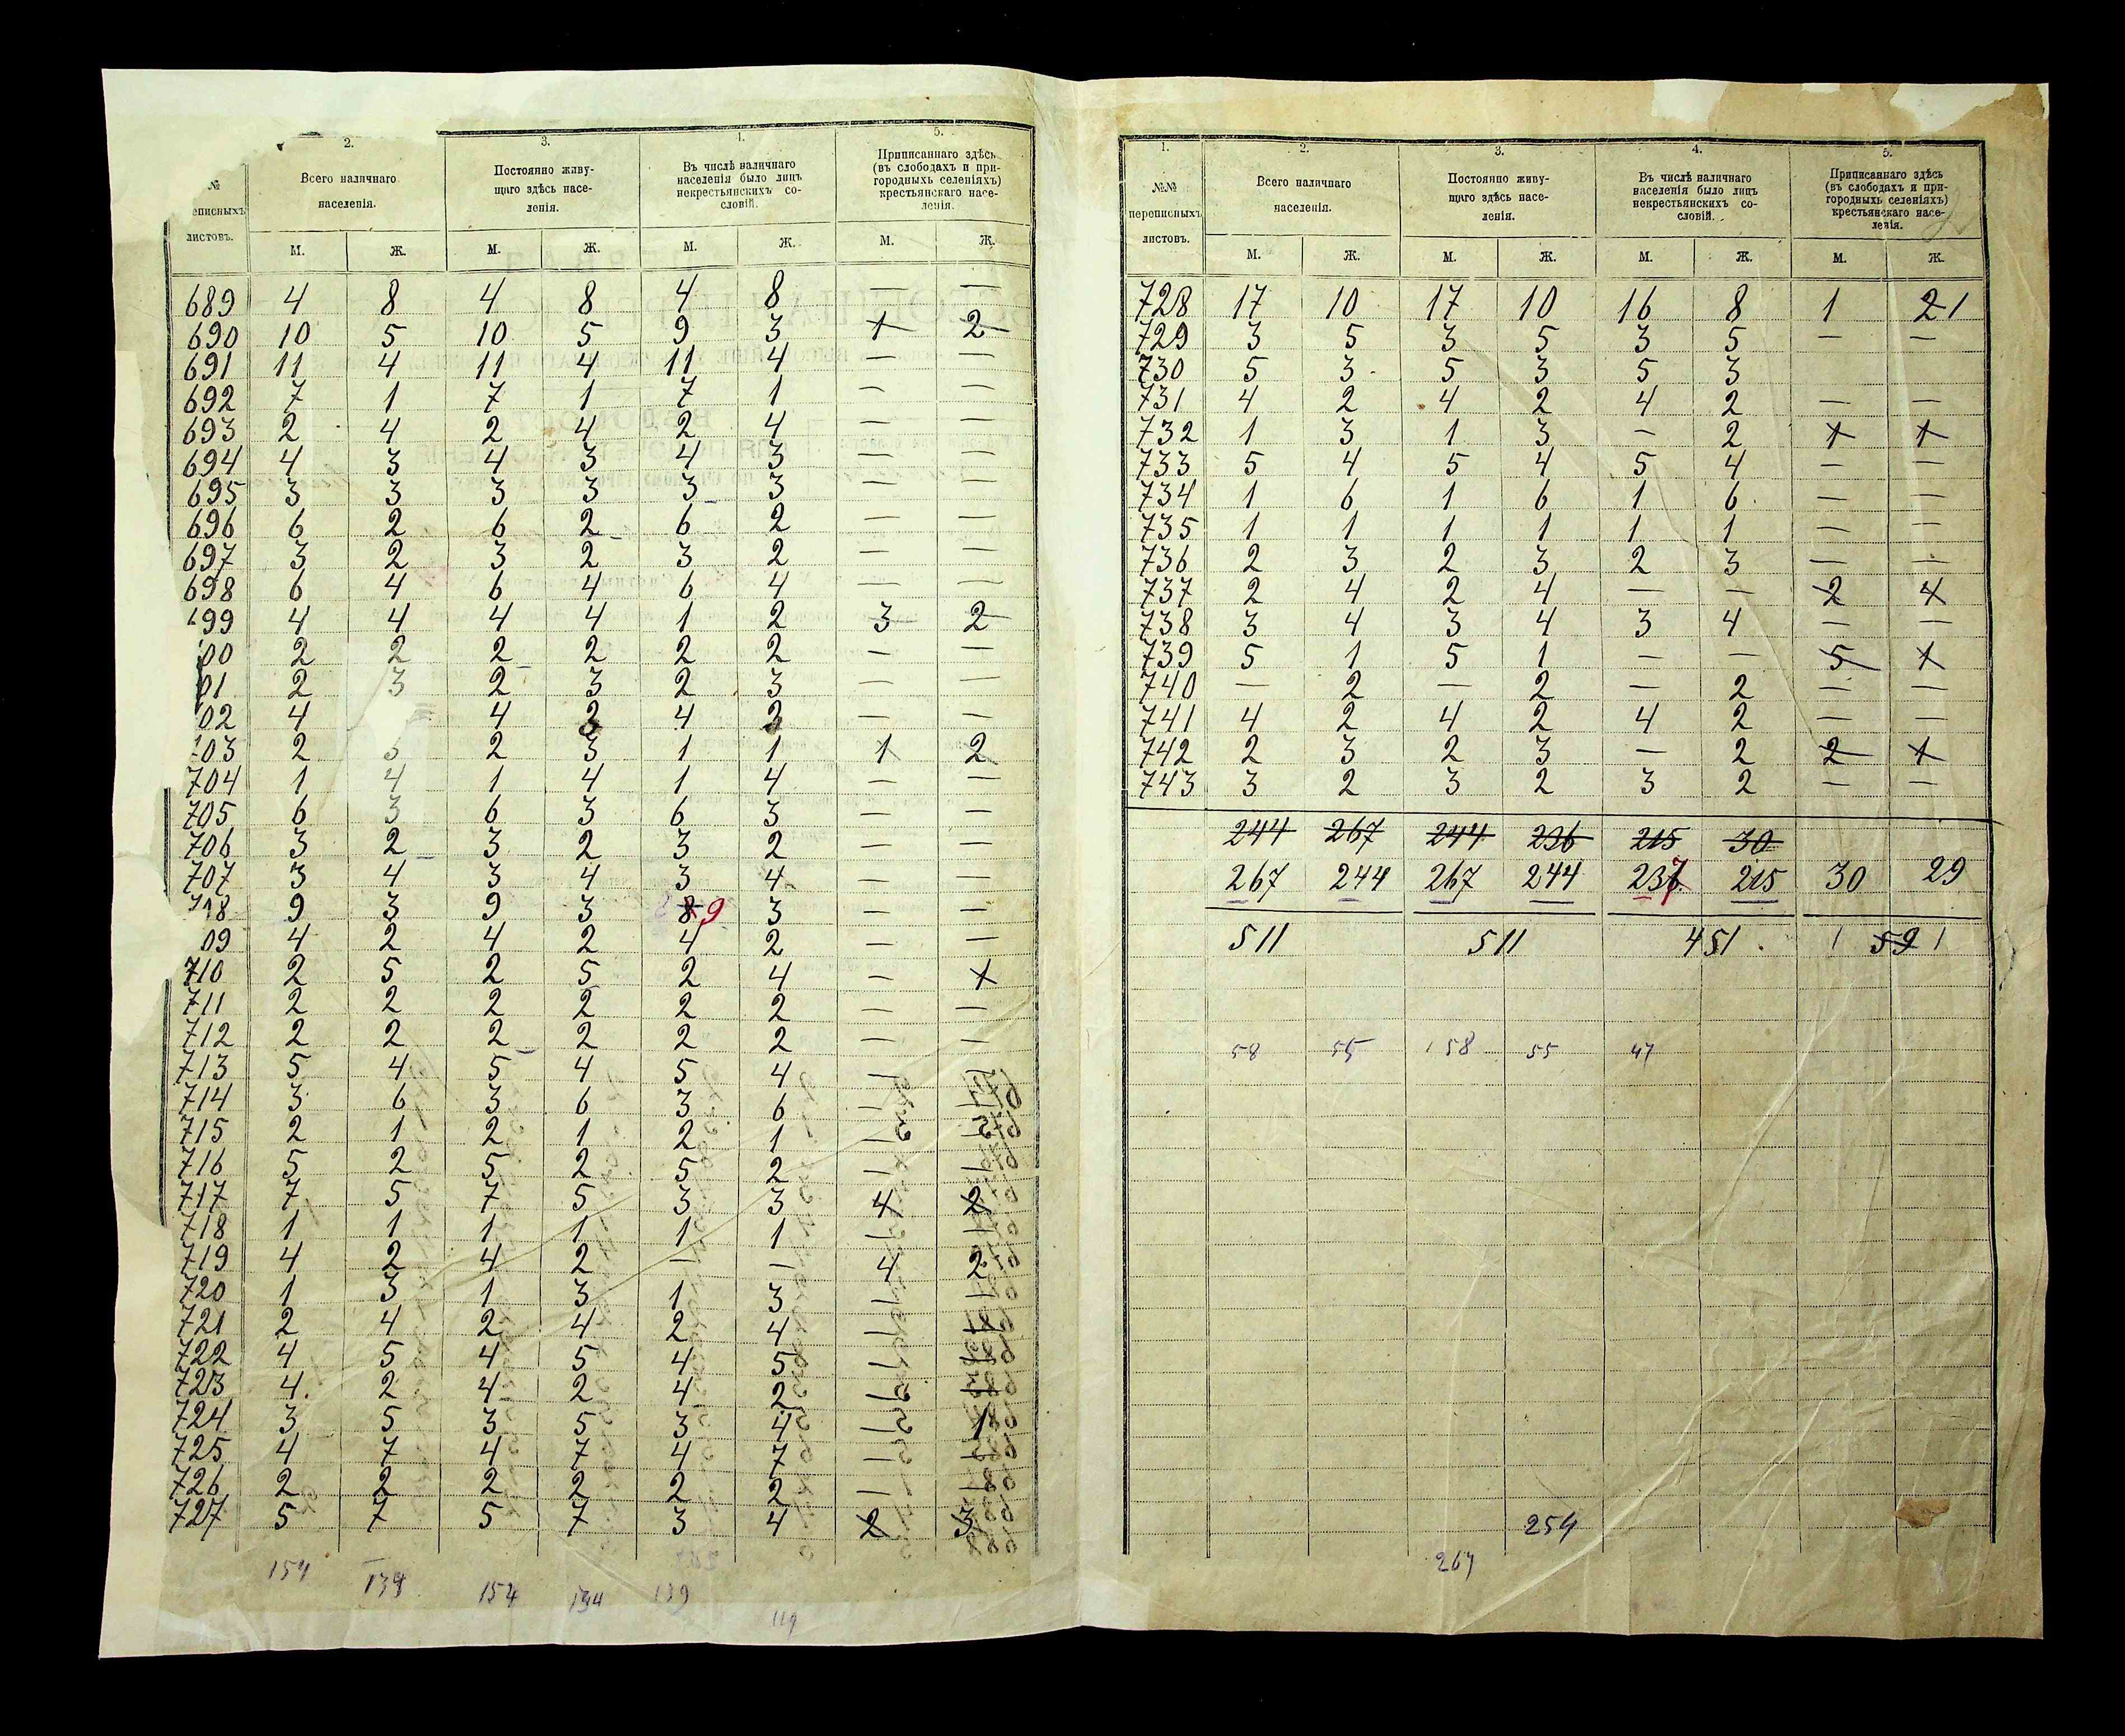 2. 3. 4. 5.
№ еписныхъ листовъ. Всего наличнаго населенія. Постоянно живущаго здѣсь населенія. Въ числѣ наличнаго населенія было лицъ некрестьянскихъ сословій. Приписаннаго здѣсь (въ слободахъ и пригородныхъ селеніяхъ) крестьянскаго населенія.
М. Ж. М. Ж. М. Ж. М. Ж.
689 4 8 4 8 4 8 — —
690 10 5 10 5 9 3 1 2
691 11 4 11 4 11 4 — —
692 7 1 7 1 7 1 — —
693 2 4 2 4 2 4 — —
694 4 3 4 3 4 3 — —
695 3 3 3 3 3 3 — —
696 6 2 6 2 6 2 — —
697 3 2 3 2 3 2 — —
698 6 4 6 4 6 4 — —
99 4 4 4 4 1 2 3 2
00 2 2 2 2 2 2 — —
01 2 3 2 3 2 3 — —
02 4 4 2 4 2 — —
03 2 3 2 3 1 1 1 2
704 1 4 1 4 1 4 — —
705 6 3 6 3 6 3 — —
706 3 2 3 2 3 2 — —
707 3 4 3 4 3 4 — —
708 9 3 9 3 8 9 3 — —
09 4 2 4 2 4 2 — —
710 2 5 2 5 2 4 — 1
711 2 2 2 2 2 2 — —
712 2 2 2 2 2 2 — —
713 5 4 5 4 5 4 — —
714 3 6 3 6 3 6 — —
715 2 1 2 1 2 1 — —
716 5 2 5 2 5 2 — —
717 7 5 7 5 3 3 4 2
718 1 1 1 1 1 1 — —
719 4 2 4 2 — — 4 2
720 1 3 1 3 1 3 — —
721 2 4 2 4 2 4 — —
722 4 5 4 5 4 5 — —
723 4 2 4 2 4 2 — —
724 3 5 3 5 3 4 — 1
725 4 7 4 7 4 7 — —
726 2 2 2 2 2 2 — —
727 5 7 5 7 3 4 2 3
154 134 154 134 139
119
1. 2. 3. 4. 5.
№№ переписныхъ листовъ. Всего наличнаго населенія. Постоянно живущаго здѣсь населенія. Въ числѣ наличнаго населенія было лицъ некрестьянскихъ сословій. Приписаннаго здѣсь (въ слободахъ и пригородныхъ селеніяхъ) крестьянскаго населенія.
М. Ж. М. Ж. М. Ж. М. Ж.
728 17 10 17 10 16 8 1 2 1
729 3 5 3 5 3 5 — —
730 5 3 5 3 5 3
731 4 2 4 2 4 2 — —
732 1 3 1 3 — 2 1 1
733 5 4 5 4 5 4 — —
734 1 6 1 6 1 6 — —
735 1 1 1 1 1 1 — —
736 2 3 2 3 2 3 — —
737 2 4 2 4 — — 2 4
738 3 4 3 4 3 4 — —
739 5 1 5 1 — — 5 1
740 — 2 — 2 — 2 — —
741 4 2 4 2 4 2 — —
742 2 3 2 3 — 2 2 1
743 3 2 3 2 3 2 — —
244 267 244 236 215 30
267 244 267 244 237 215 30 29
511 511 451 1 59 1
58 55 58 55 47
254
267